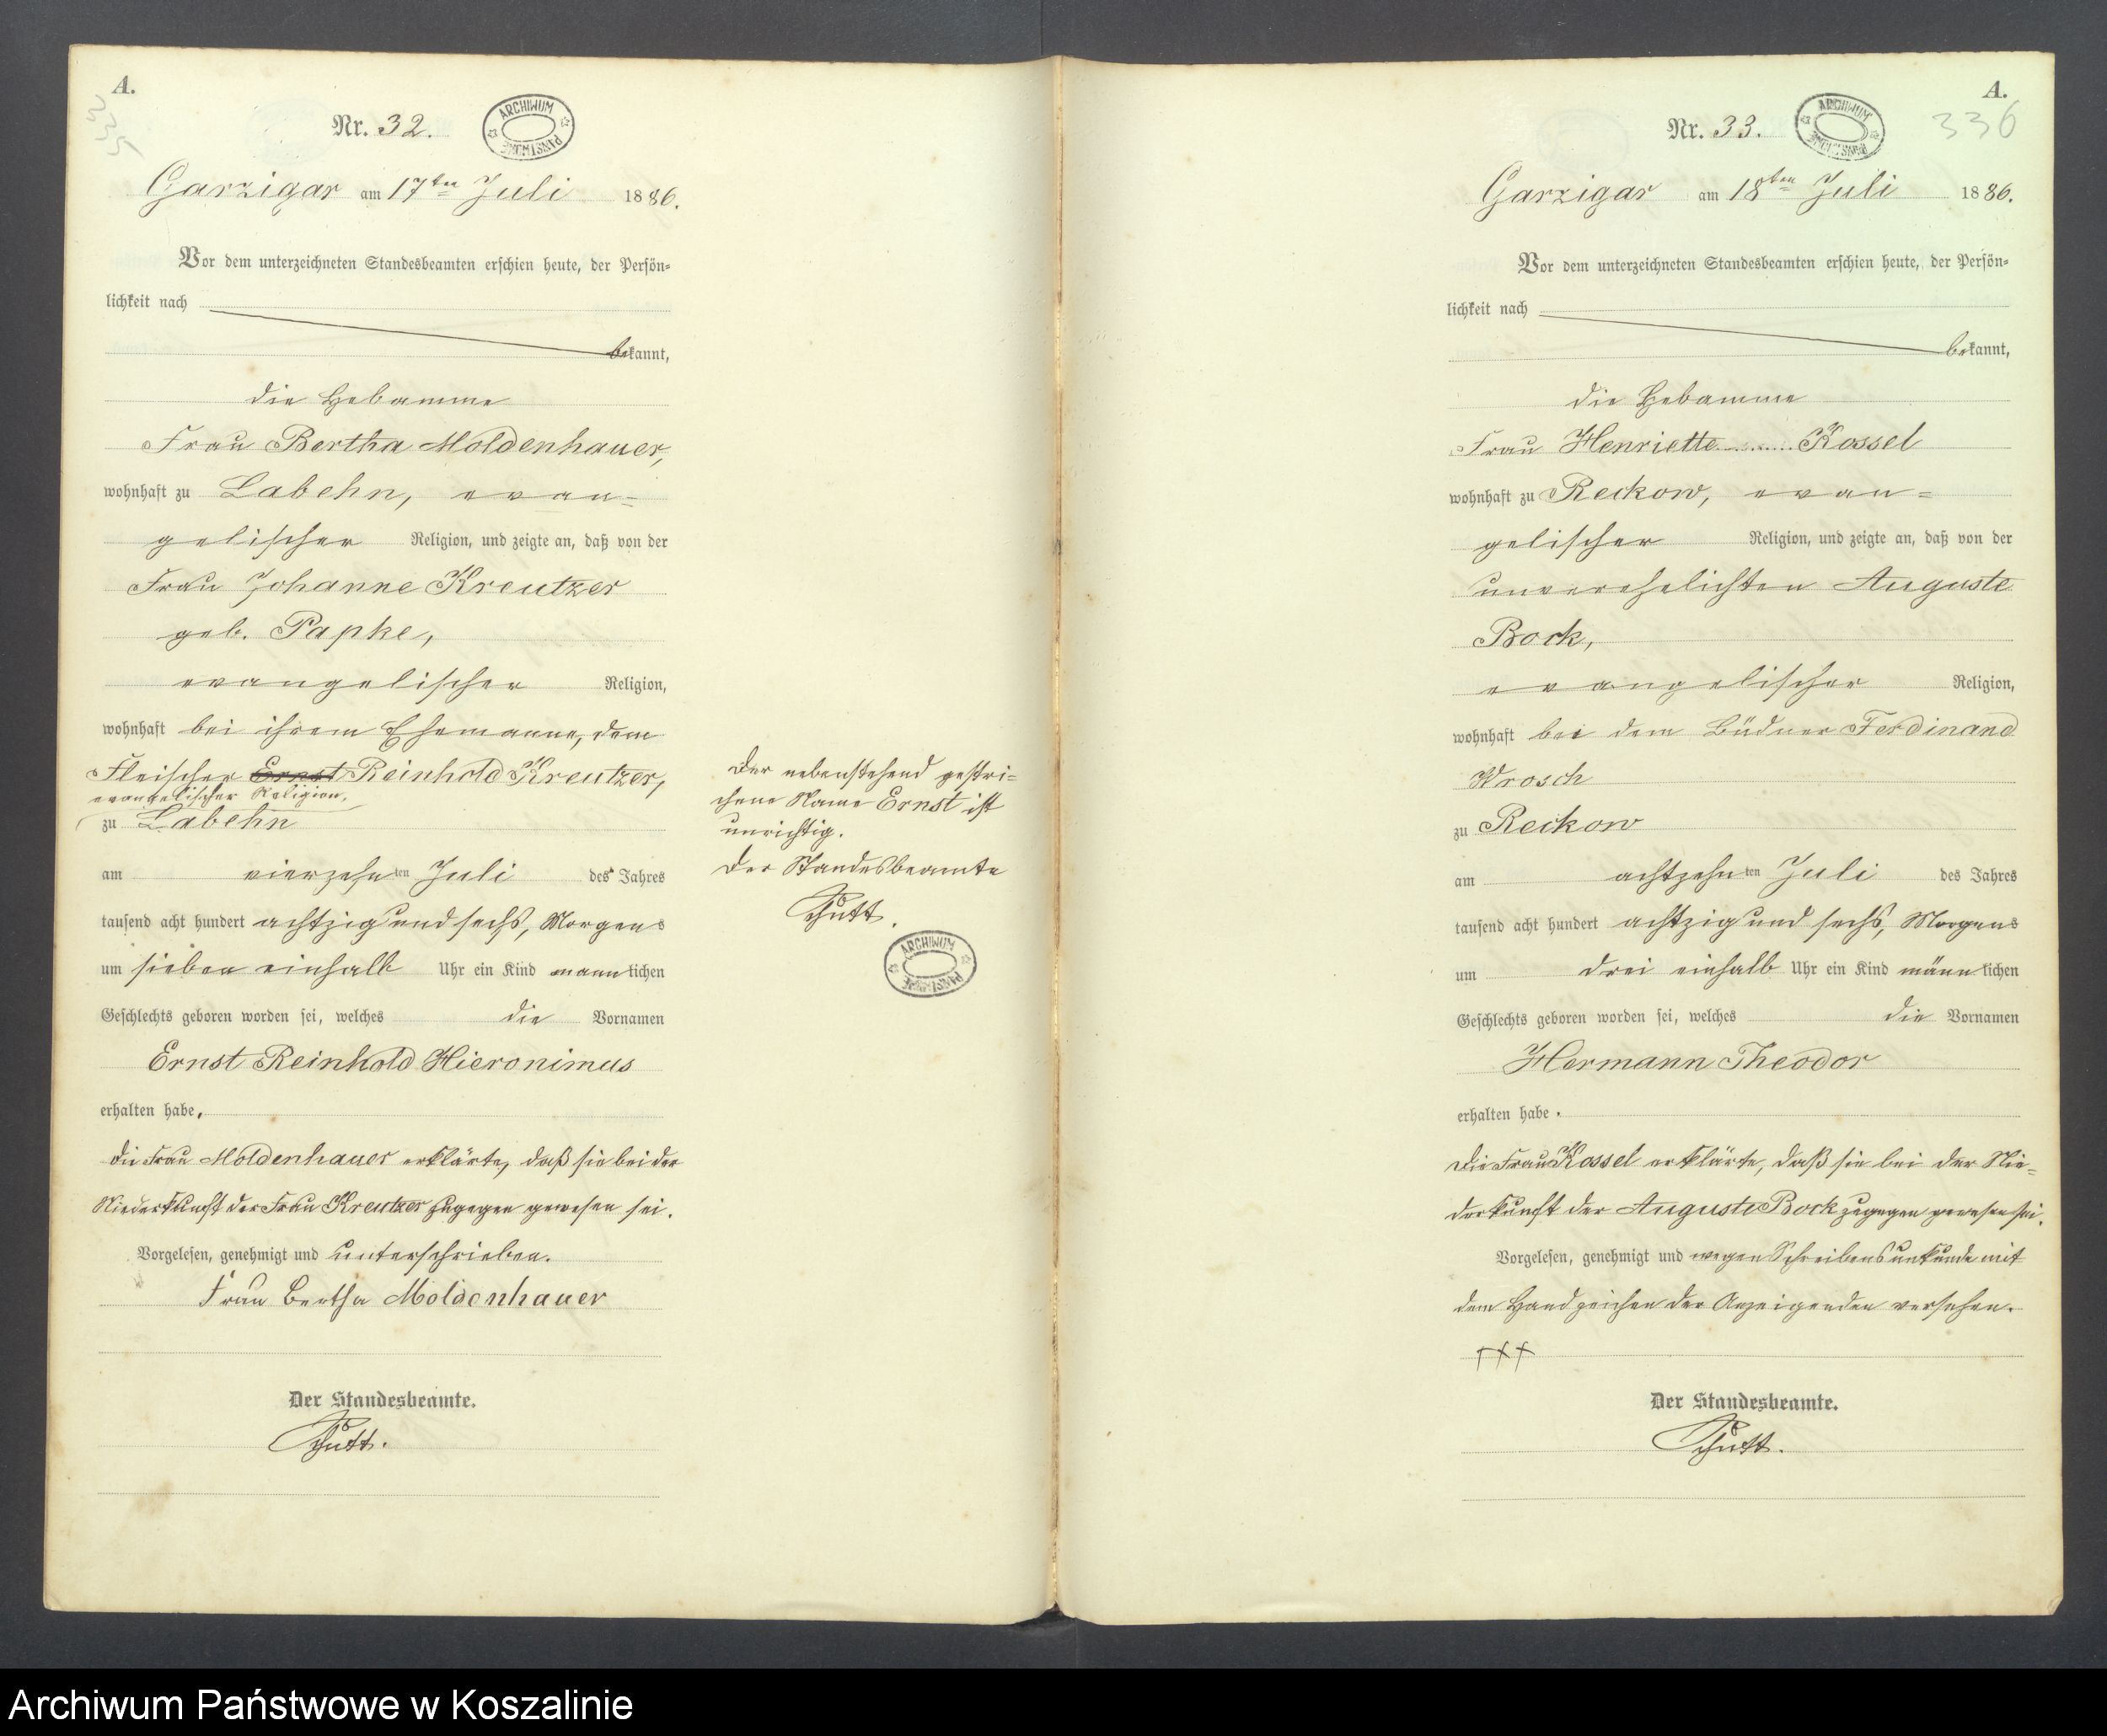 A.
335
Nr. 32.
ARCHIWUM PAŃSTWOWE
Garzigar am 17ten Juli 1886.
Vor dem unterzeichneten Standesbeamten erschien heute, der Persön=
lichkeit nach
bekannt,
die Hebamme
Frau Bertha Moldenhauer,
wohnhaft zu Labehn, evan-
gelischer Religion, und zeigte an, daß von der
Frau Johanne Kreutzer
geb. Papke,
evangelischer Religion,
wohnhaft bei ihrem Ehemanne, dem
Fleischer Ernst Reinhold Kreutzer,
evangelischer Religion,
zu Labehn
am vierzehnten Juli des Jahres
tausend acht hundert achtzig und sechs, Morgens
um sieben einhalb Uhr ein Kind mannlichen
Geschlechts geboren worden sei, welches die Vornamen
Ernst Reinhold Hieronimus
erhalten habe.
Die Frau Moldenhauer erklärte, daß sie bei der
Niederkunft der Frau Kreutzer zugegen gewesen sei.
Vorgelesen, genehmigt und unterschrieben.
Frau Bertha Moldenhauer
Der Standesbeamte.
Schutt.
Der nebenstehend gestri=
chene Name Ernst ist
unrichtig.
Der Standesbeamte
Schutt.
ARCHIWUM PAŃSTWOWE
A.
336
Nr. 33.
ARCHIWUM PAŃSTWOWE
Garzigar am 18ten Juli 1886.
Vor dem unterzeichneten Standesbeamten erschien heute, der Persön=
lichkeit nach
bekannt,
die Hebamme
Frau Henriette Kossel
wohnhaft zu Reckow, evan=
gelischer Religion, und zeigte an, daß von der
unverehelichten Auguste
Bock,
evangelischer Religion,
wohnhaft bei dem Büdner Ferdinand
Wrosch
zu Reckow
am achtzehnten Juli des Jahres
tausend acht hundert achtzig und sechs, Morgens
um drei einhalb Uhr ein Kind männlichen
Geschlechts geboren worden sei, welches die Vornamen
Hermann Theodor
erhalten habe.
Die Frau Kossel erklärte, daß sie bei der Nie=
derkunft der Auguste Bock zugegen gewesen sei.
Vorgelesen, genehmigt und wegen Schreibensunkunde mit
dem Handzeichen der Anzeigenden versehen.
+++
Der Standesbeamte.
Schutt.
Archiwum Państwowe w Koszalinie